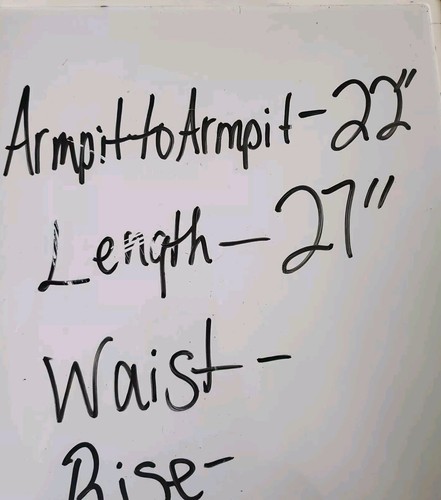 Armpit to Armpit - 22"
Length - 27"
Waist -
Rise -